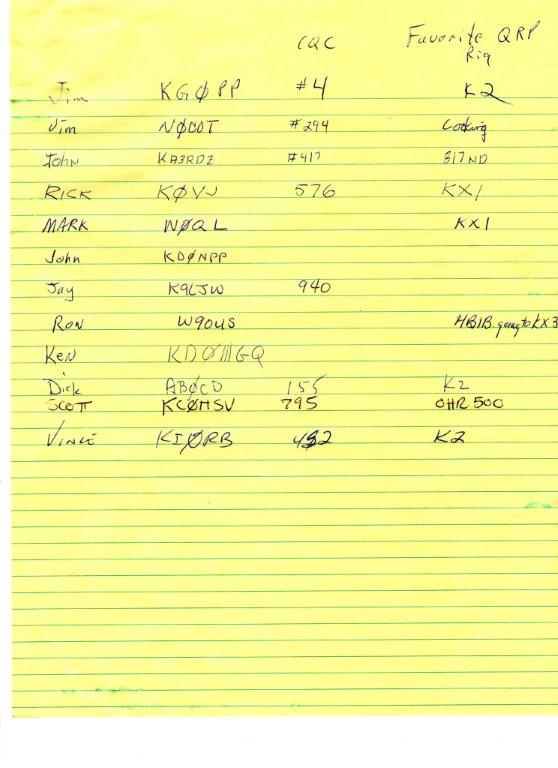 CQC Favorite QRP
Rig
Jim KGØPP #4 K2
Jim NØCOT #294
John KA3RDZ #417
RICK KØVJ 576 KX1
MARK WØQL KX1
John KDØNPP
Jay K9LJW 940
RON W9OUS HB1B. going to KX3
KEN
Dick ABØCD 155 K2
SCOTT KCØMSV 795 OHR 500
VINCE KIØRB K2